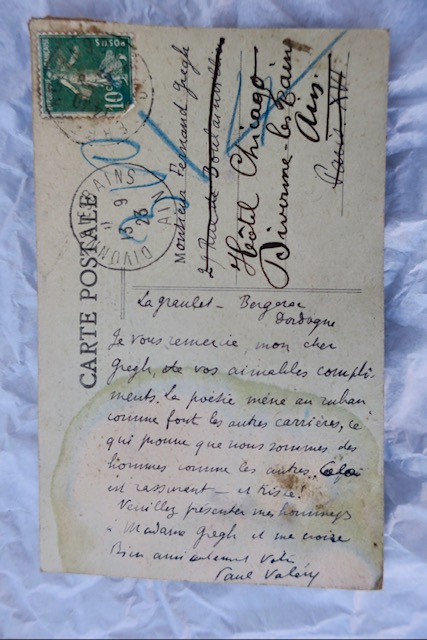 CARTE POSTALE
10c
POSTES
DIVONNE-LES-BAINS
AIN
13 9
23
11
Monsieur Fernand Gregh
Rue de Boulainvilliers
Hôtel Chicago
Divonne-les-Bains
Ain.
Paris XVI
La graulet – Bergerac
Dordogne
Je vous remercie mon cher
Gregh, de vos aimables compli-
ments. La poésie mène au ruban
comme font les autres carrières, ce
qui prouve que nous sommes des
hommes comme les autres..
est rassurant – et triste!
Veuillez présenter mes hommages
à Madame Gregh et me croire
Bien amicalement Votre
Paul Valéry